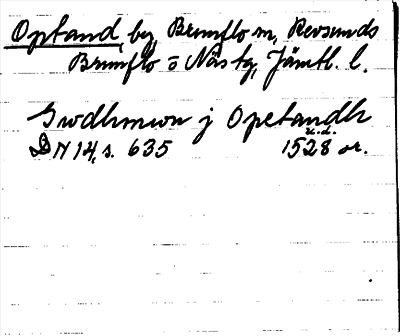 Optand, by, Brunflo sn, Revsunds
Brunflo o Näs tg, Jämtl. l.
Gwdhmwn j Opetandh
u.d.
DN 14, s. 635 1528 or.